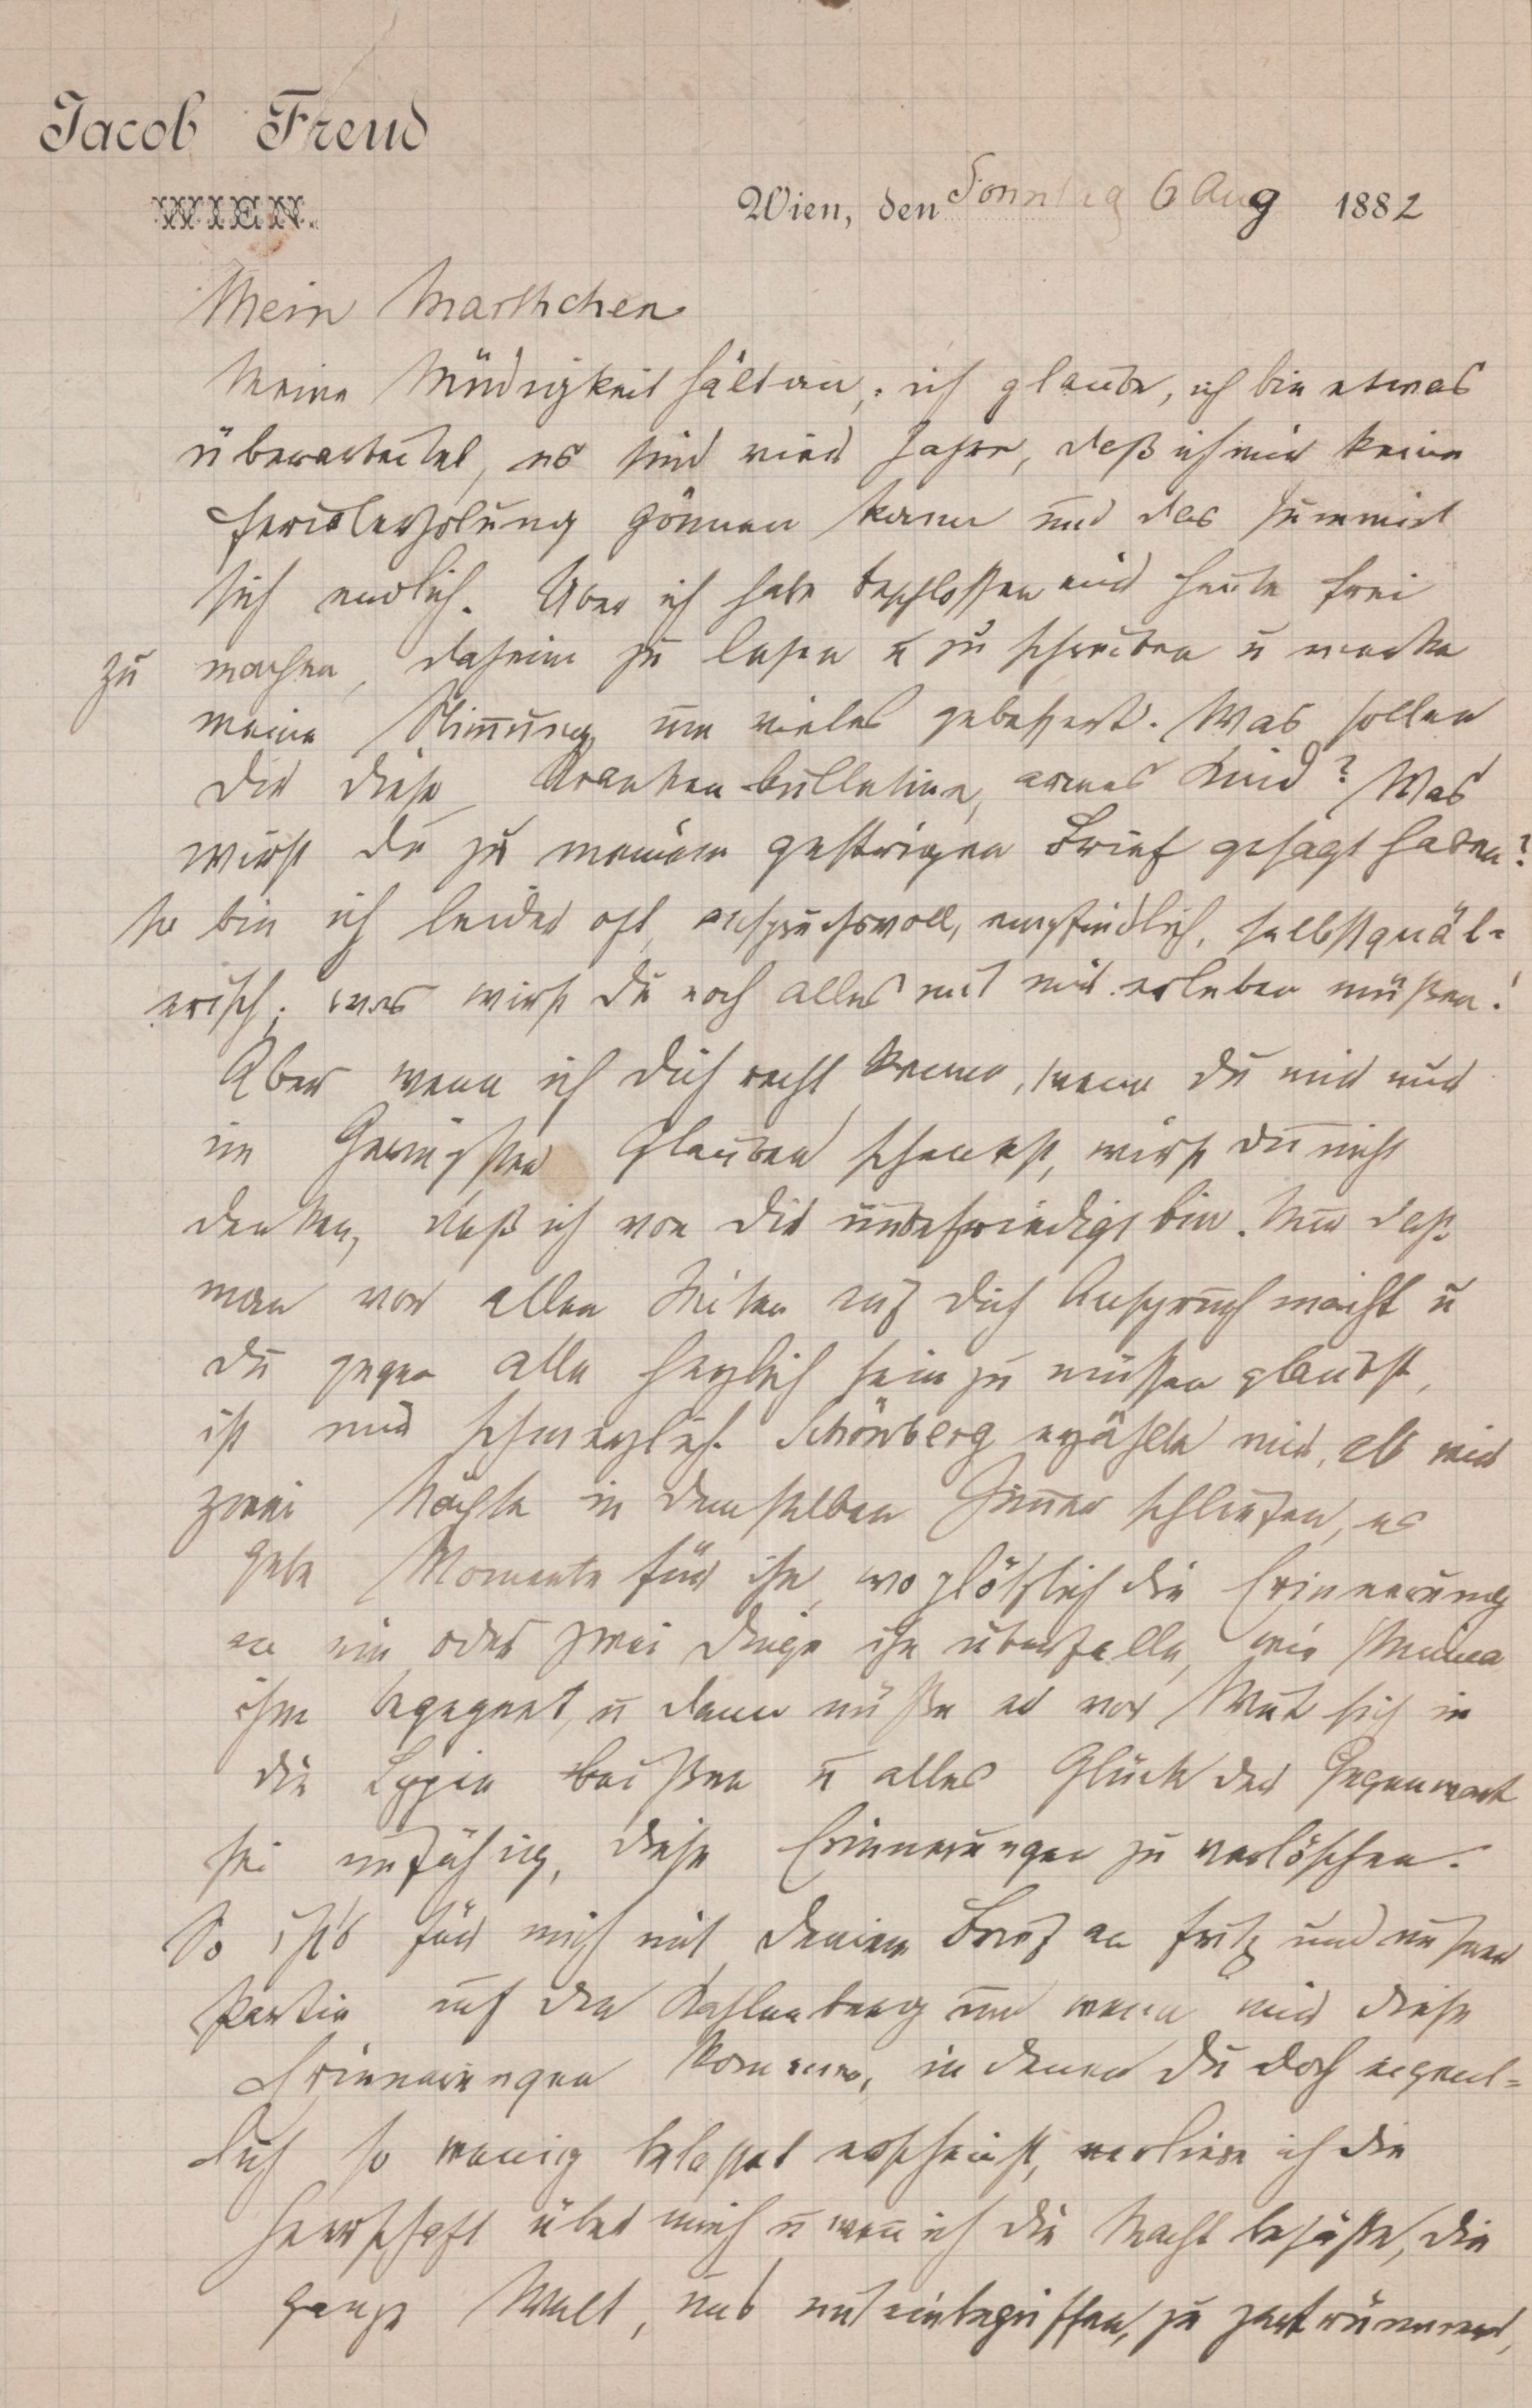 Jacob Freud
WIEN.
Wien, den Sonntag 6 Aug 1882
Mein Marthchen
Meine Müdigkeit hält an, ich glaube, ich bin etwas
überarbeitet, es sind vier Jahre, daß ich mir keine
Ferialerholung gönnen kann und das summirt
sich endlich. Aber ich habe beschlossen mich heute frei
zu machen, daheim zu lesen u zu schreiben u merke
meine Stimmung um vieles gebessert. Was sollen
Dir diese Krankenbulletins, armes Kind? Was
wirst du zu meinem gestrigen Brief gesagt haben?
So bin ich leider oft, anspruchsvoll, empfindlich, selbstquäl-
erisch; was wirst Du noch alles mit mir erleben müßen!
Aber wenn ich Dich recht kenne, wenn Du mir nur
im Geringsten Glauben schenkst, wirst Du nicht
denken, daß ich von Dir unbefriedigt bin. Nur daß
man von allen Seiten auf Dich Anspruch macht u
Du gegen alle herzlich sein zu müssen glaubst,
ist mir schmerzlich. Schönberg erzählte mir, als wir
zwei Nächte in demselben Zimmer schliefen, es
gebe Momente für ihn, wo plötzlich die Erinnerung
an ein oder zwei Dinge ihn überfalle, wie Minna
ihm begegnet, u dann müße er vor Wut sich in
die Lippen beißen u alles Glück der Gegenwart
sei unfähig, diese Erinnerungen zu verlöschen.
So ist's für mich mit Deinem Brief an Fritz und unserer
Partie auf den Kahlenberg und wenn mir diese
Erinnerungen kommen, in denen Du doch eigent-
lich so wenig belastet erscheinst, verliere ich die
Herrschaft über mich u wenn ich die Macht besäße, die
ganze Welt, uns mit einbegriffen, zu zertrümmern,